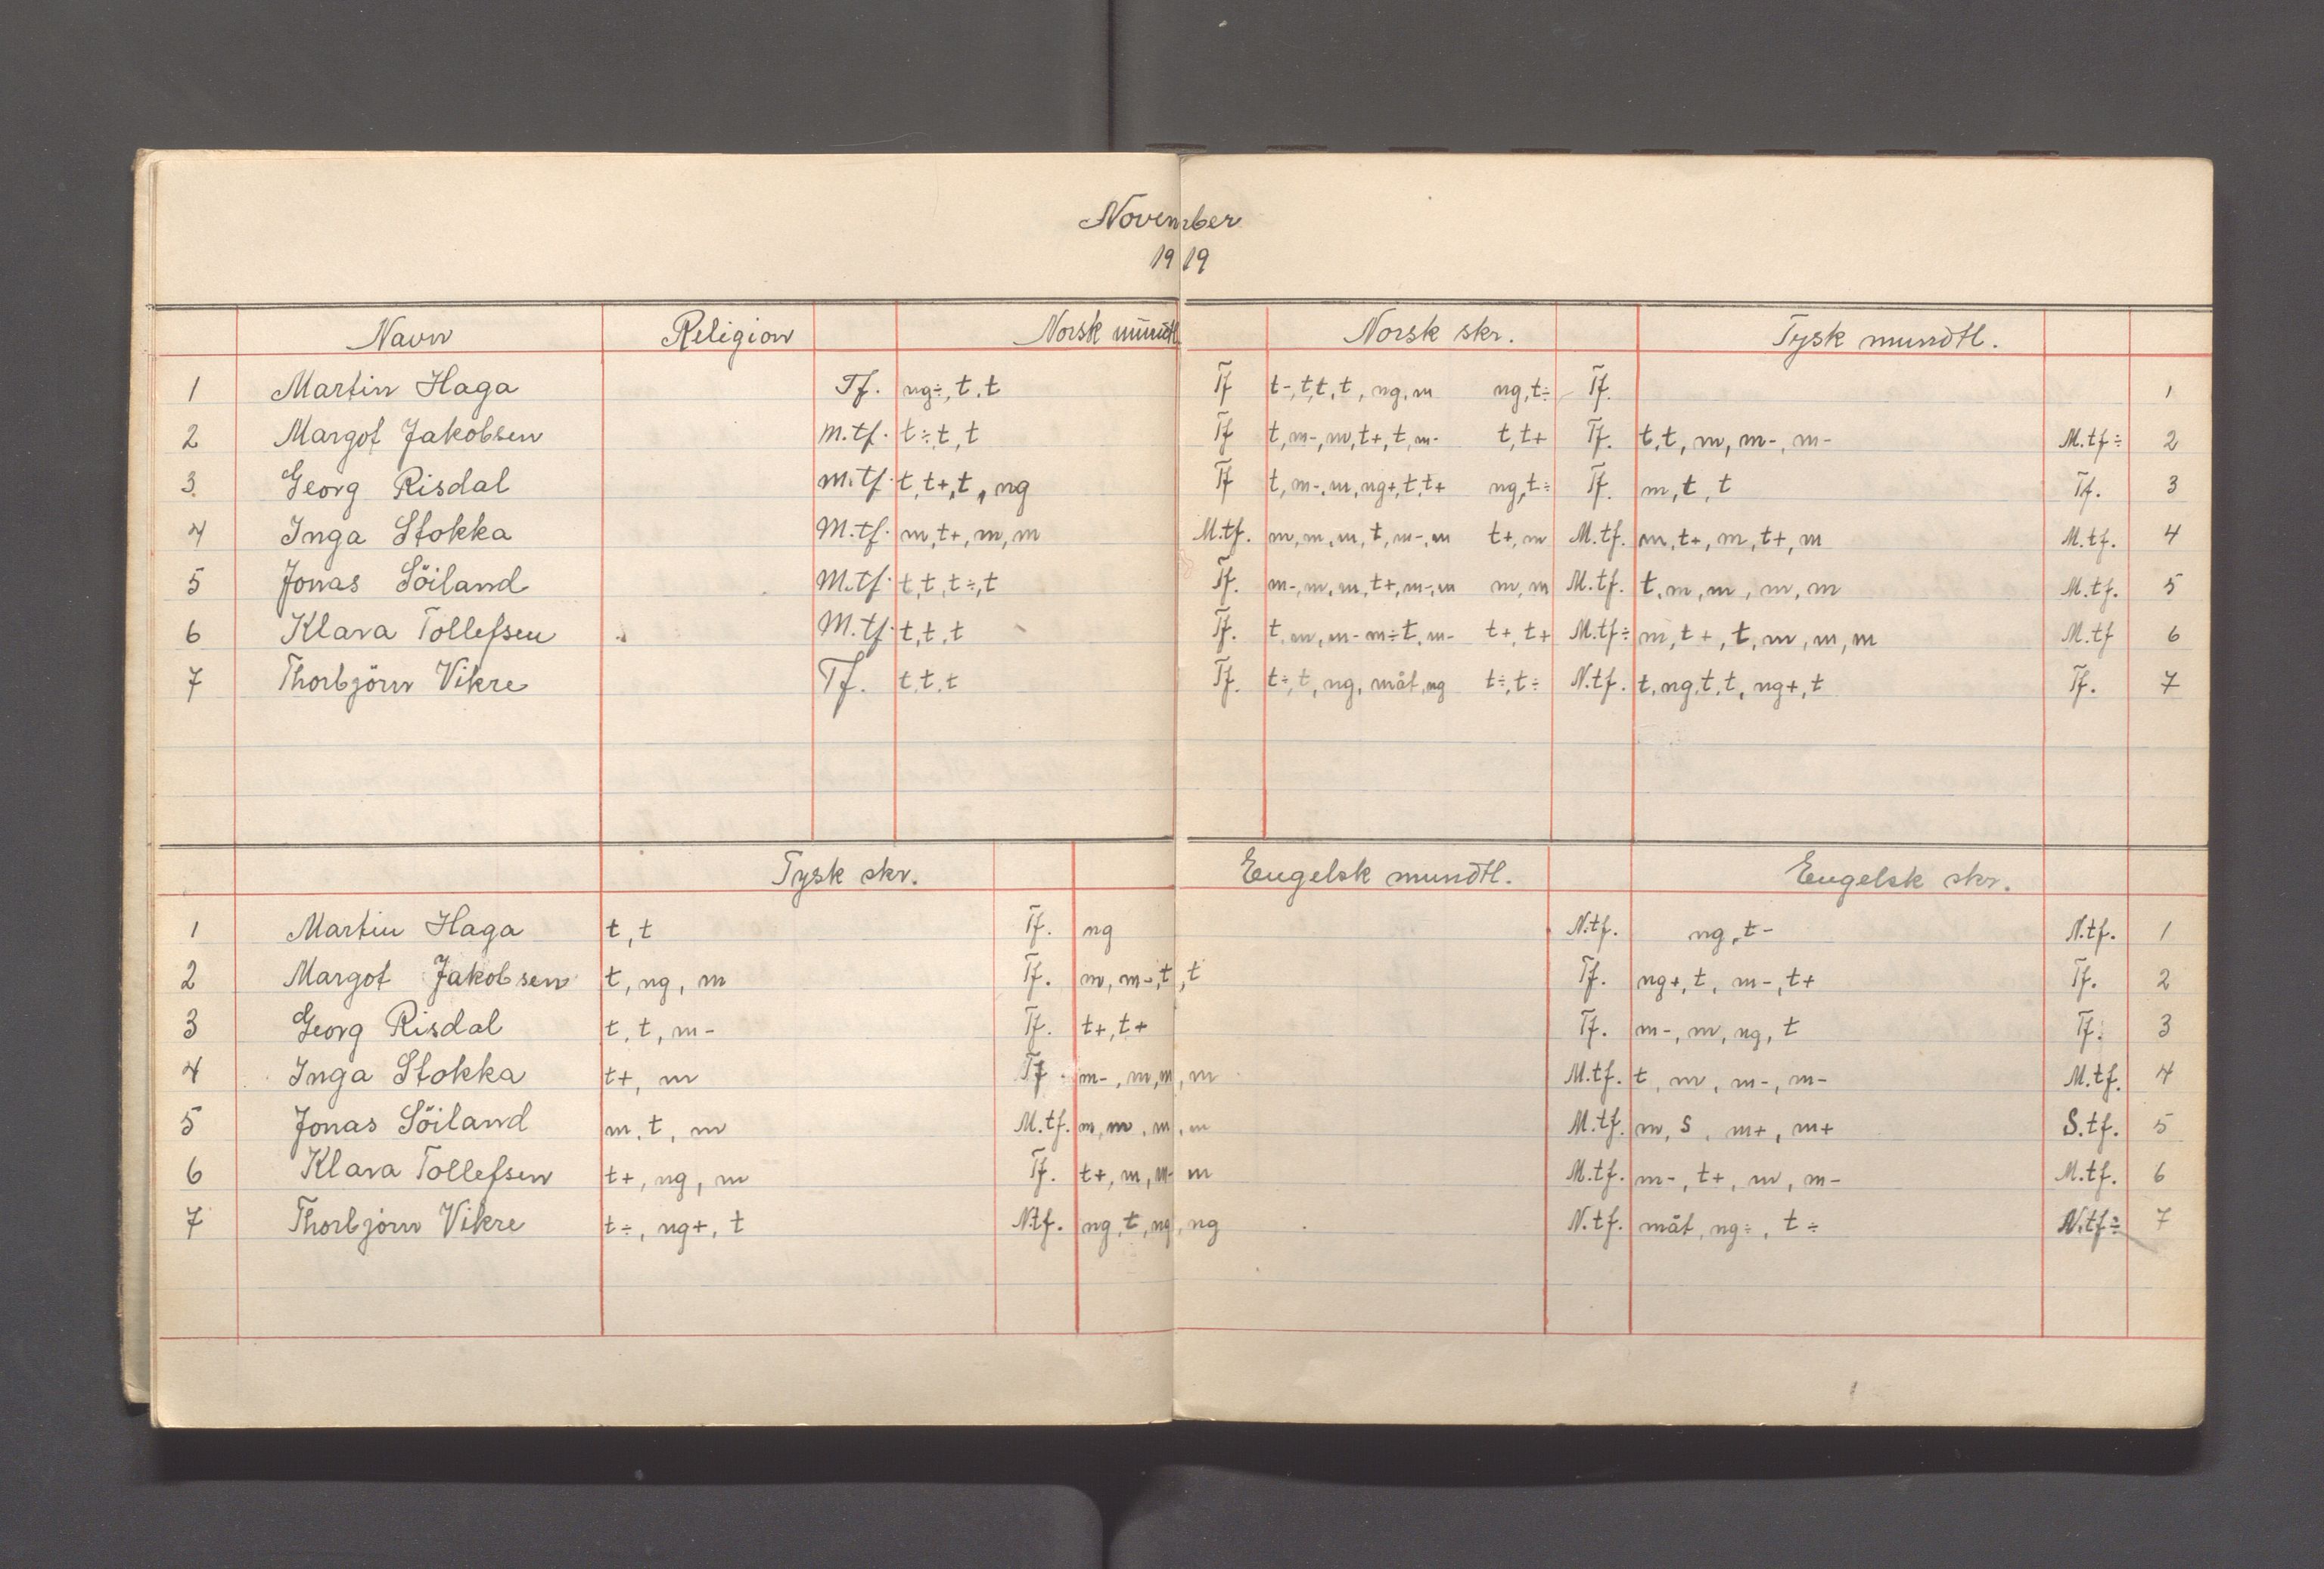 November
19 19
Navn Religion Norsk mundtl Norsk skr. Tysk mundtl.
1 Martin Haga Tf. ng÷, t, t Tf t-, t, t, t, ng, m ng, t÷ Tf. 1
2 Margot Jakobsen M.tf. t÷, t, t Tf t, m-, m, t+, t, m- t, t+ Tf. t, t, m, m-, m- M.tf÷ 2
3. Georg Risdal M.tf. t, t+, t, ng Tf t, m-, m, ng+, t, t+ ng, t÷ Tf. m, t, t Tf. 3
4 Inga Stokka M.tf. m, t+, m, m M.tf. m, m, m, t, m-, m t+, m M.tf. m, t+, m, t+, m M.tf. 4
5 Jonas Söiland M.tf. t, t, t÷, t Tf. m-, m, m, t+, m-, m m, m M.tf. t, m, m, m, m M.tf. 5
6 Klara Tollefsen M.tf. t, t, t Tf. t, m, m- m÷ t, m- t+, t+ M.tf÷ m, t+, t, m, m, m M.tf 6
7 Thorbjörn Vikre Tf. t, t, t Tf. t÷, t, ng, måt, ng t÷, t÷ N.tf. t, ng, t, t, ng+, t Tf. 7
Tysk skr. Engelsk mundtl. Engelsk skr.
1 Martin Haga t, t Tf. ng N.tf. ng, t- N.tf. 1
2 Margot Jakobsen t, ng, m Tf. m, m-, t, t Tf. ng+, t, m-, t+ Tf. 2
3 Georg Risdal t, t, m- Tf. t+, t+ Tf. m-, m, ng, t Tf. 3
4 Inga Stokka t+, m Tf. m-, m, m, m M.tf. t, m, m-, m- M.tf. 4
5 Jonas Söiland m, t, m M.tf. m, m, m, m M.tf. m, s, m+, m+ S.tf. 5
6 Klara Tollefsen t+, ng, m Tf. t+, m, m- m M.tf. m-, t+, m, m- M.tf. 6
7 Thorbjörn Vikre t÷, ng+, t N.tf. ng, t, ng, ng N.tf. måt, ng÷, t÷ N.tf÷ 7